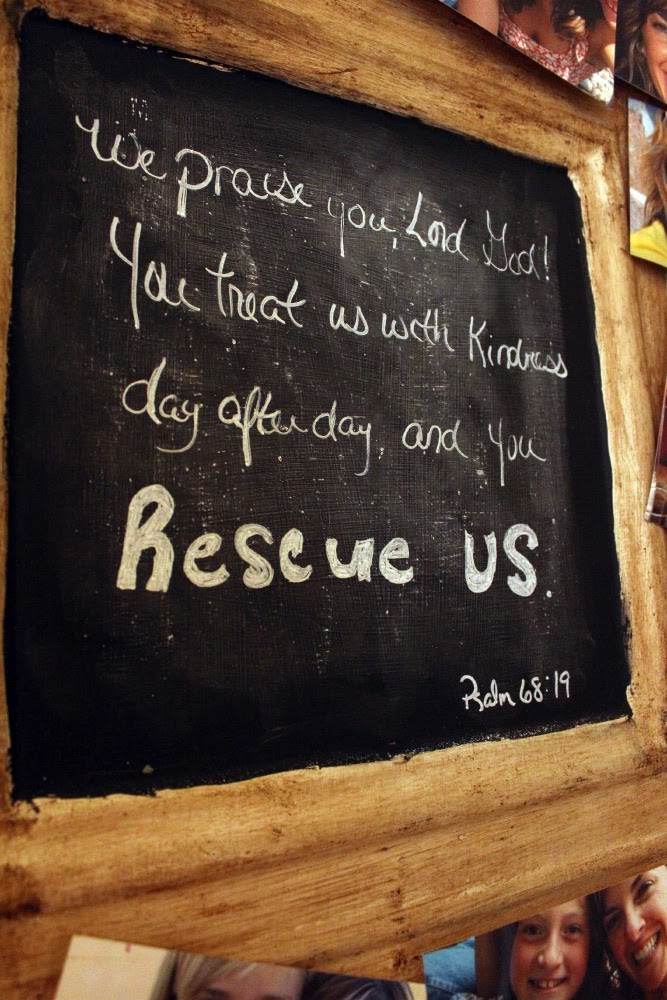 We praise you, Lord God!
You treat us with Kindness
day after day, and you
Rescue us.
Psalm 68:19